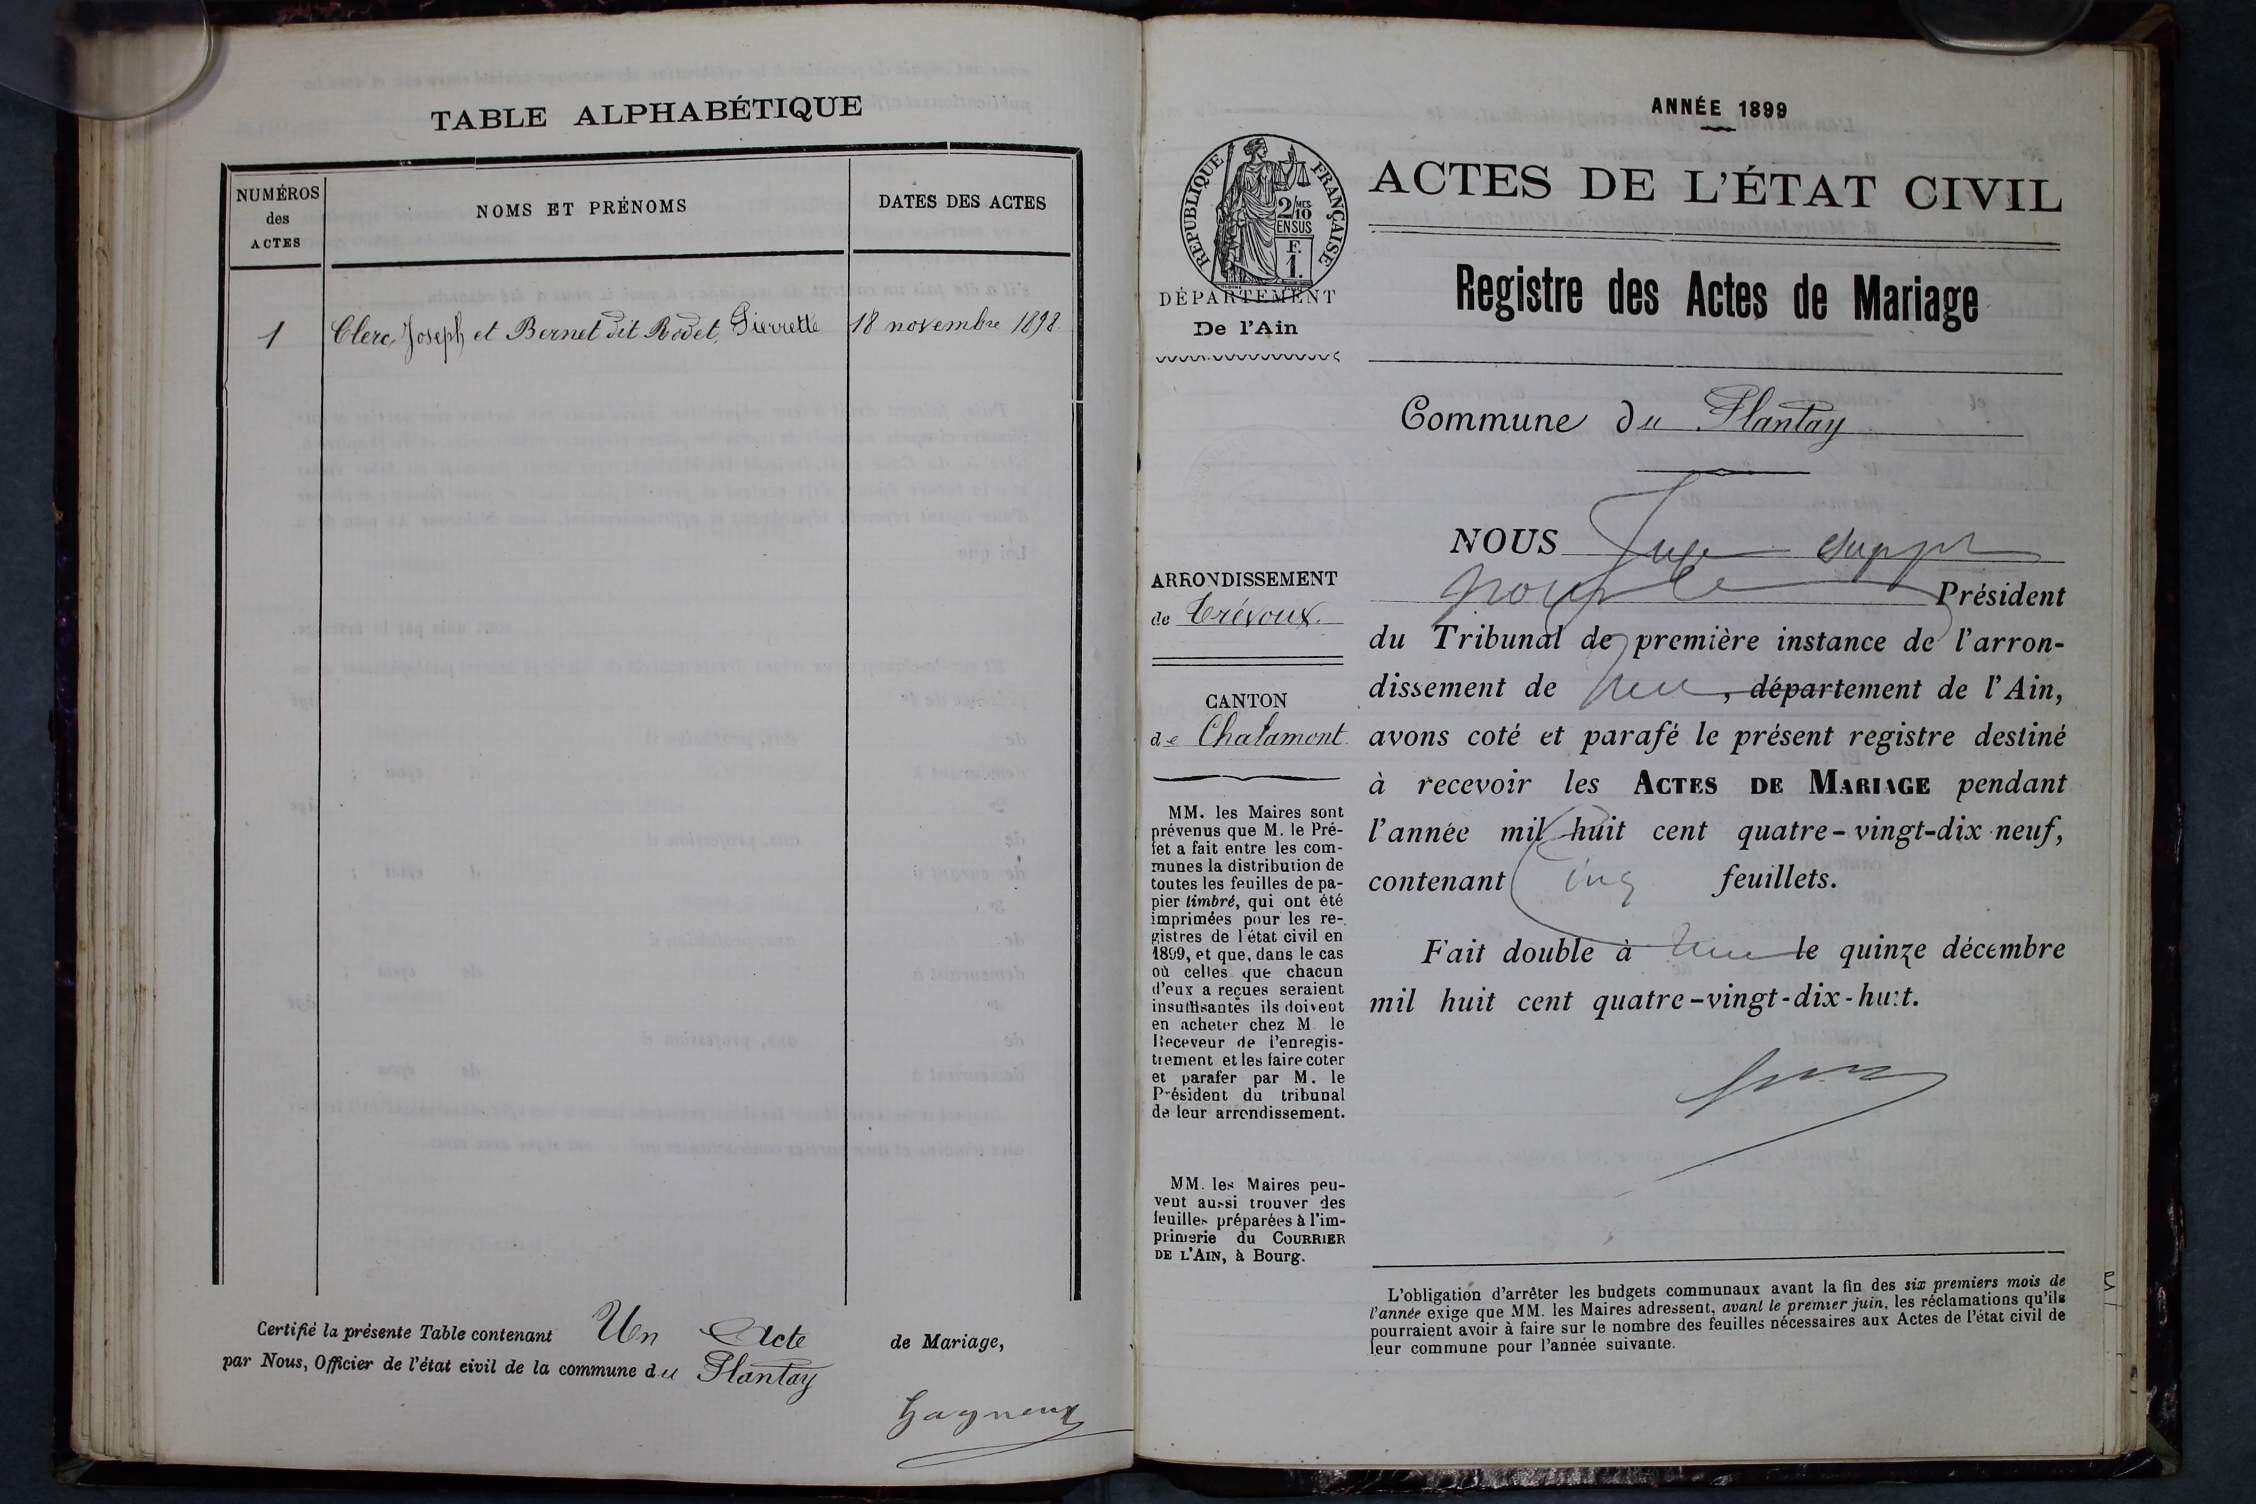 TABLE ALPHABÉTIQUE
NUMÉROS
des
ACTES
NOMS ET PRÉNOMS
DATES DES ACTES
1
Clerc, Joseph et Bernet dit Rodet, Pierrette
18 novembre 1898
Certifié la présente Table contenant Un Acte de Mariage,
par Nous, Officier de l'état civil de la commune du Plantay
Gagneux
ANNÉE 1899
RÉPUBLIQUE FRANÇAISE
2/10
MES
EN SUS
F.
1.
DÉPARTEMENT
De l'Ain
ACTES DE L'ÉTAT CIVIL
Registre des Actes de Mariage
Commune du Plantay
ARRONDISSEMENT
de Trévoux.
CANTON
de Chalamont.
MM. les Maires sont
prévenus que M. le Pré-
fet a fait entre les com-
munes la distribution de
toutes les feuilles de pa-
pier timbré, qui ont été
imprimées pour les re-
gistres de l'état civil en
1899, et que, dans le cas
où celles que chacun
d'eux a reçues seraient
insuffisantes ils doivent
en acheter chez M. le
Receveur de l'enregis-
trement et les faire coter
et parafer par M. le
Président du tribunal
de leur arrondissement.
MM. les Maires peu-
vent aussi trouver des
feuilles préparées à l'im-
primerie du COURRIER
DE L'AIN, à Bourg.
NOUS Juge suppt
pour le Président
du Tribunal de première instance de l'arron-
dissement de , département de l'Ain,
avons coté et parafé le présent registre destiné
à recevoir les ACTES DE MARIAGE pendant
l'année mil huit cent quatre-vingt-dix neuf,
contenant Cinq feuillets.
Fait double à le quinze décembre
mil huit cent quatre-vingt-dix-huit.
L'obligation d'arrêter les budgets communaux avant la fin des six premiers mois de
l'année exige que MM. les Maires adressent, avant le premier juin, les réclamations qu'ils
pourraient avoir à faire sur le nombre des feuilles nécessaires aux Actes de l'état civil de
leur commune pour l'année suivante.